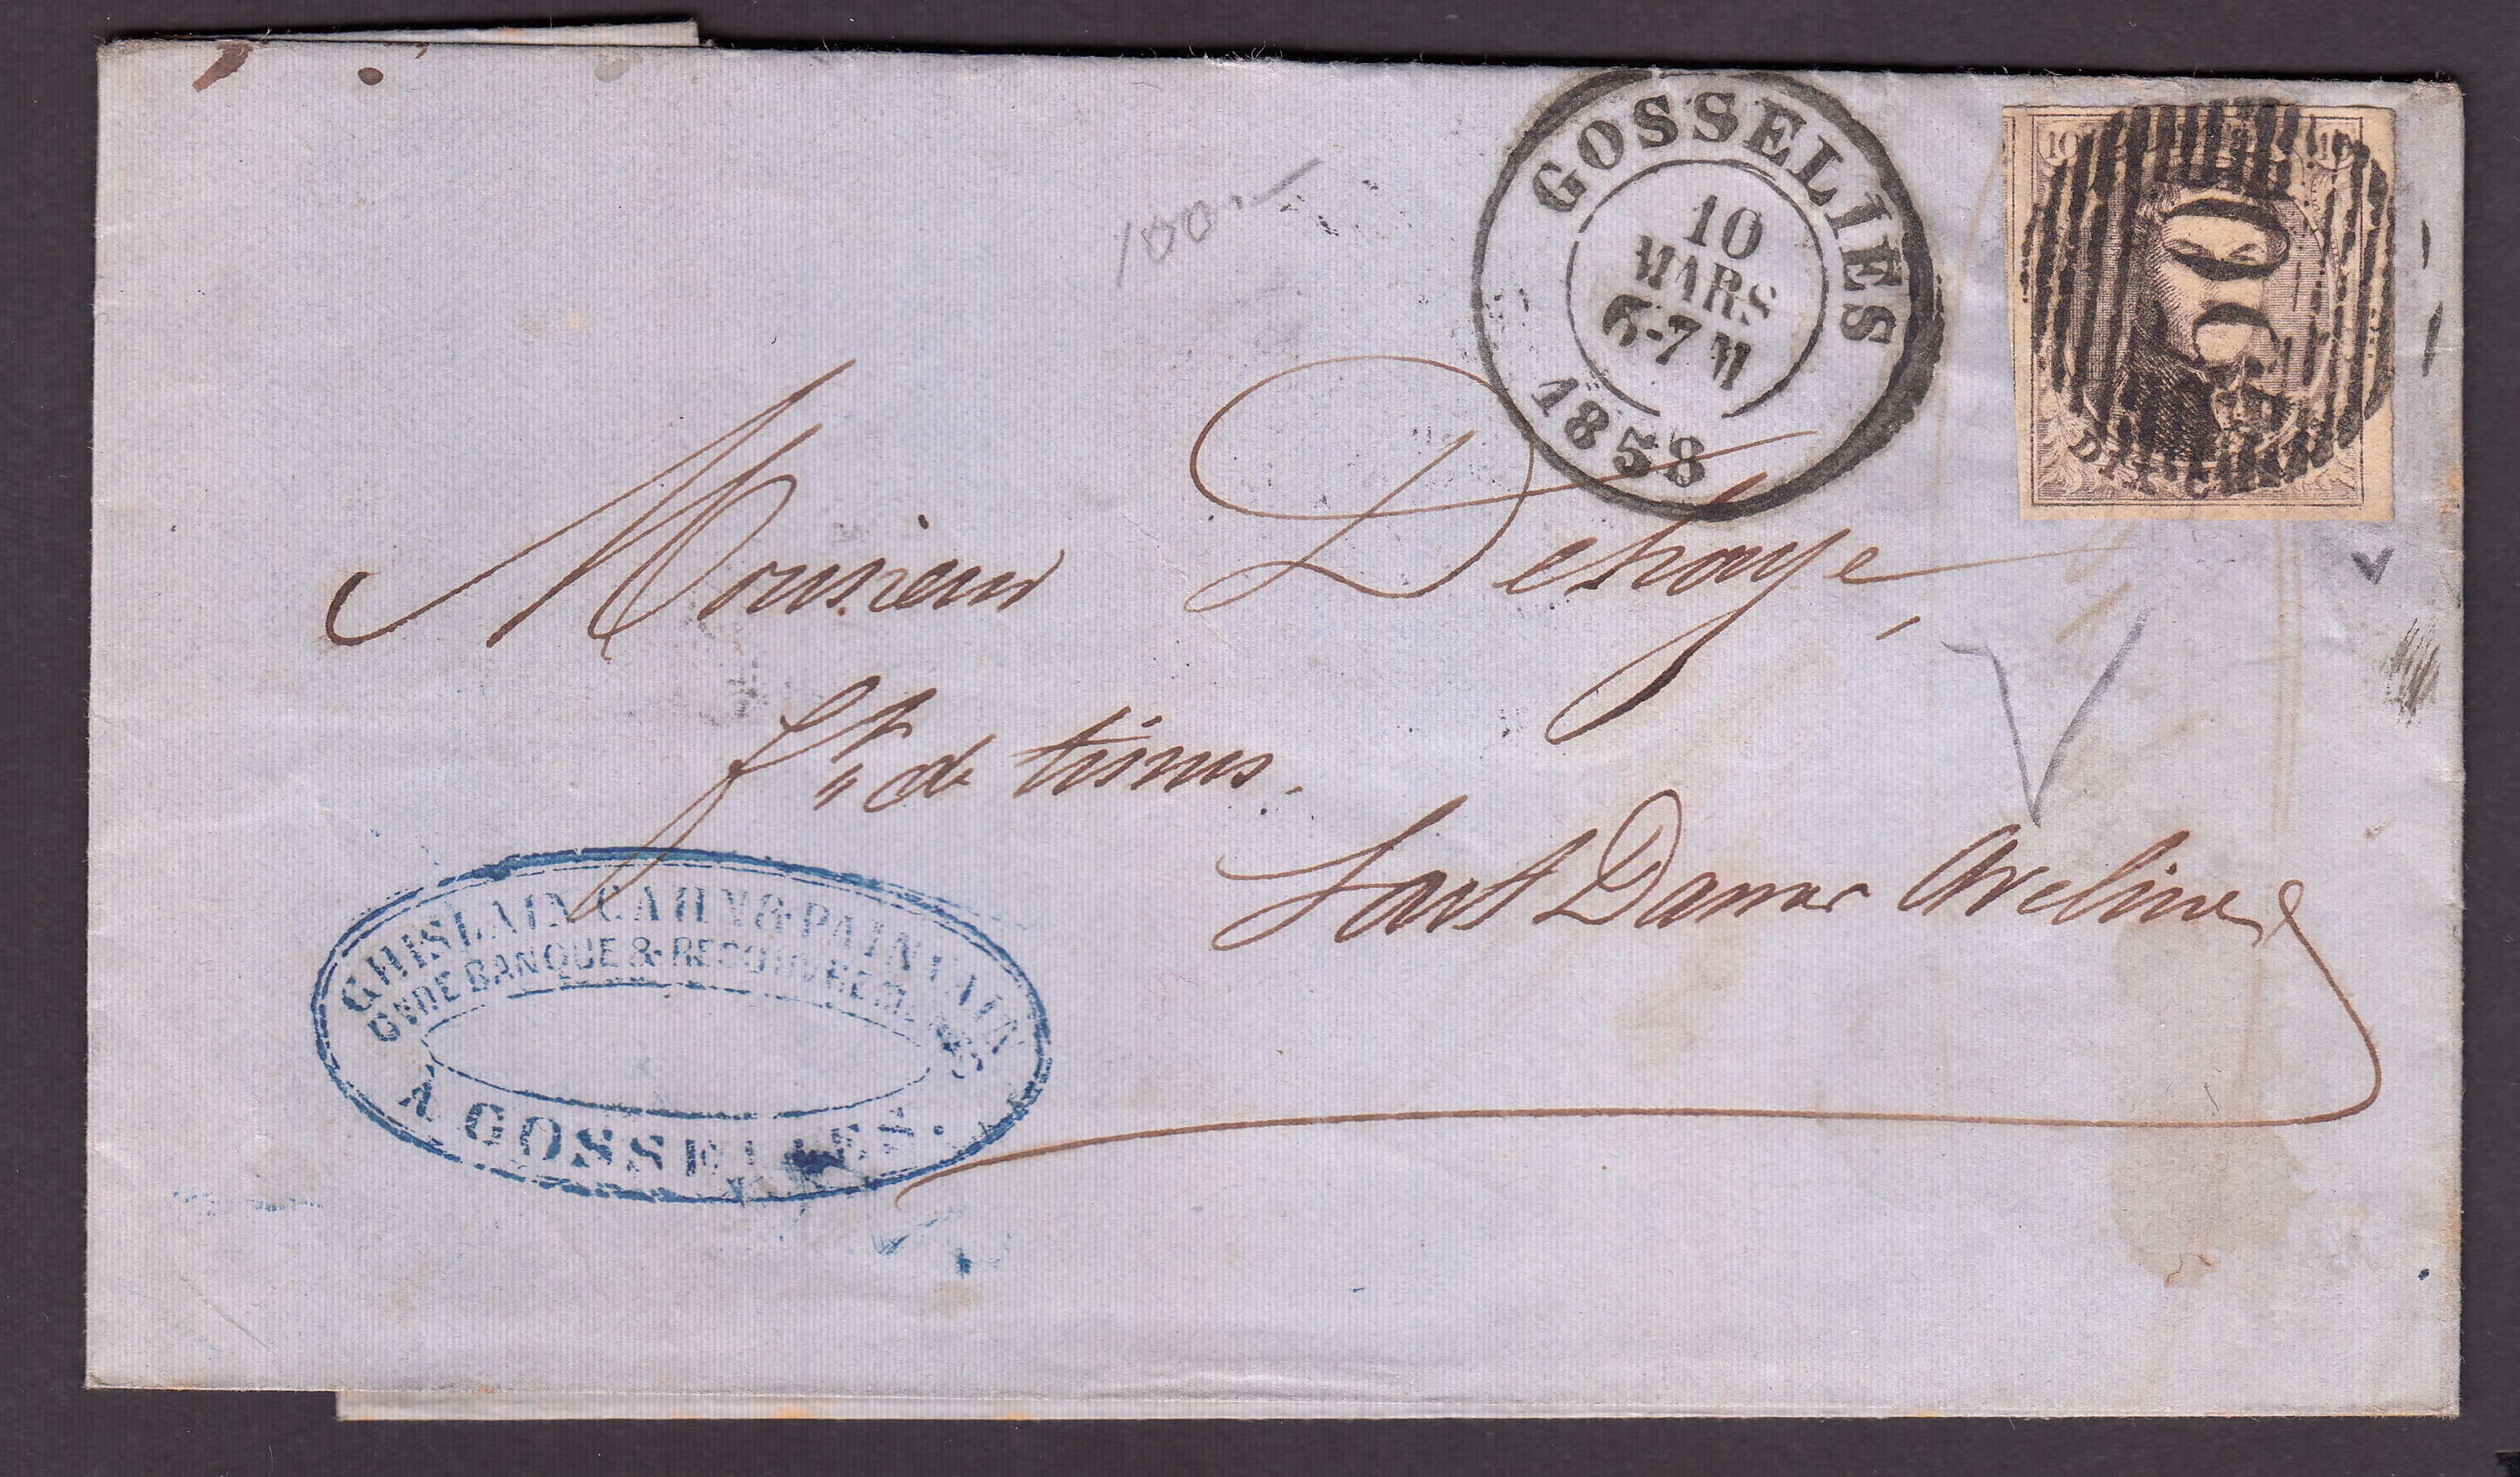 100.-
GOSSELIES
10
MARS
6-7 M
1858
10 10
DIX CENTIMES
Monsieur Dehaye,
ft de tissus.
Sart Dames Avelines
GHISLAIN, CAHN & PAINTAIN
BANQUE & RECOUVREMENTS
A GOSSELIES.